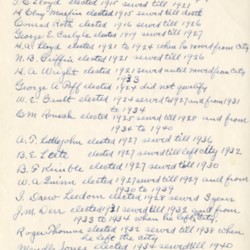 T. E. Lloyd elected 1915 served till 1921
H. Clay Murphy elected 1915 served till death
Conrad Roth elected 1916 served till 1926
George E. Carlyle elected 1919 served till 1927
H. A. Lloyd elected 1921 to 1924 when he moved from City
N. B. Griffin elected 1921 served till 1926
H. A. Wright elected 1921 served until moved from City
1933
George A. Poff elected 1924 did not qualify
W. E. Scott elected 1924 served to 1927 and from 1931
to 1934
C. M. Housh elected 1925 served till 1928 and from
1936 to 1940
A. T. Littlejohn elected 1927 served till 1936
B. E. elected 1927 served till left city 1932
B. F. Kimble elected 1927 served till 1930
W. A. Quinn elected 1927 served till 1929 and from
1930 to 1939
I. Drew Ledom elected 1928 served 3 years
J. M. Derr elected 1928 served till 1932 and from
1933 to 1934 when he left City.
Roger Thomas elected 1932 served till 1938 when
he left the city
Mendle Jones elected 1934 served 1940